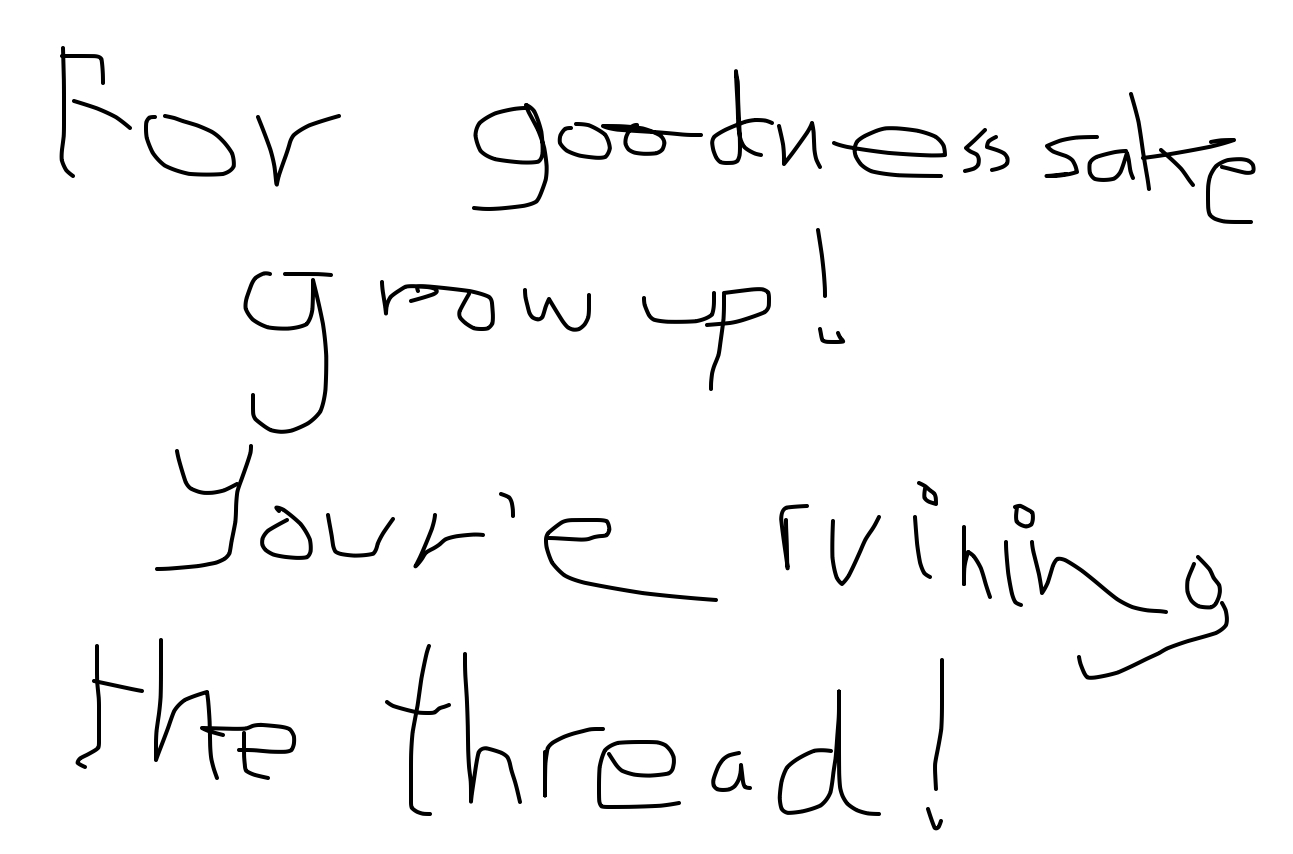 For goodness sake
grow up!
You're ruining
the thread!